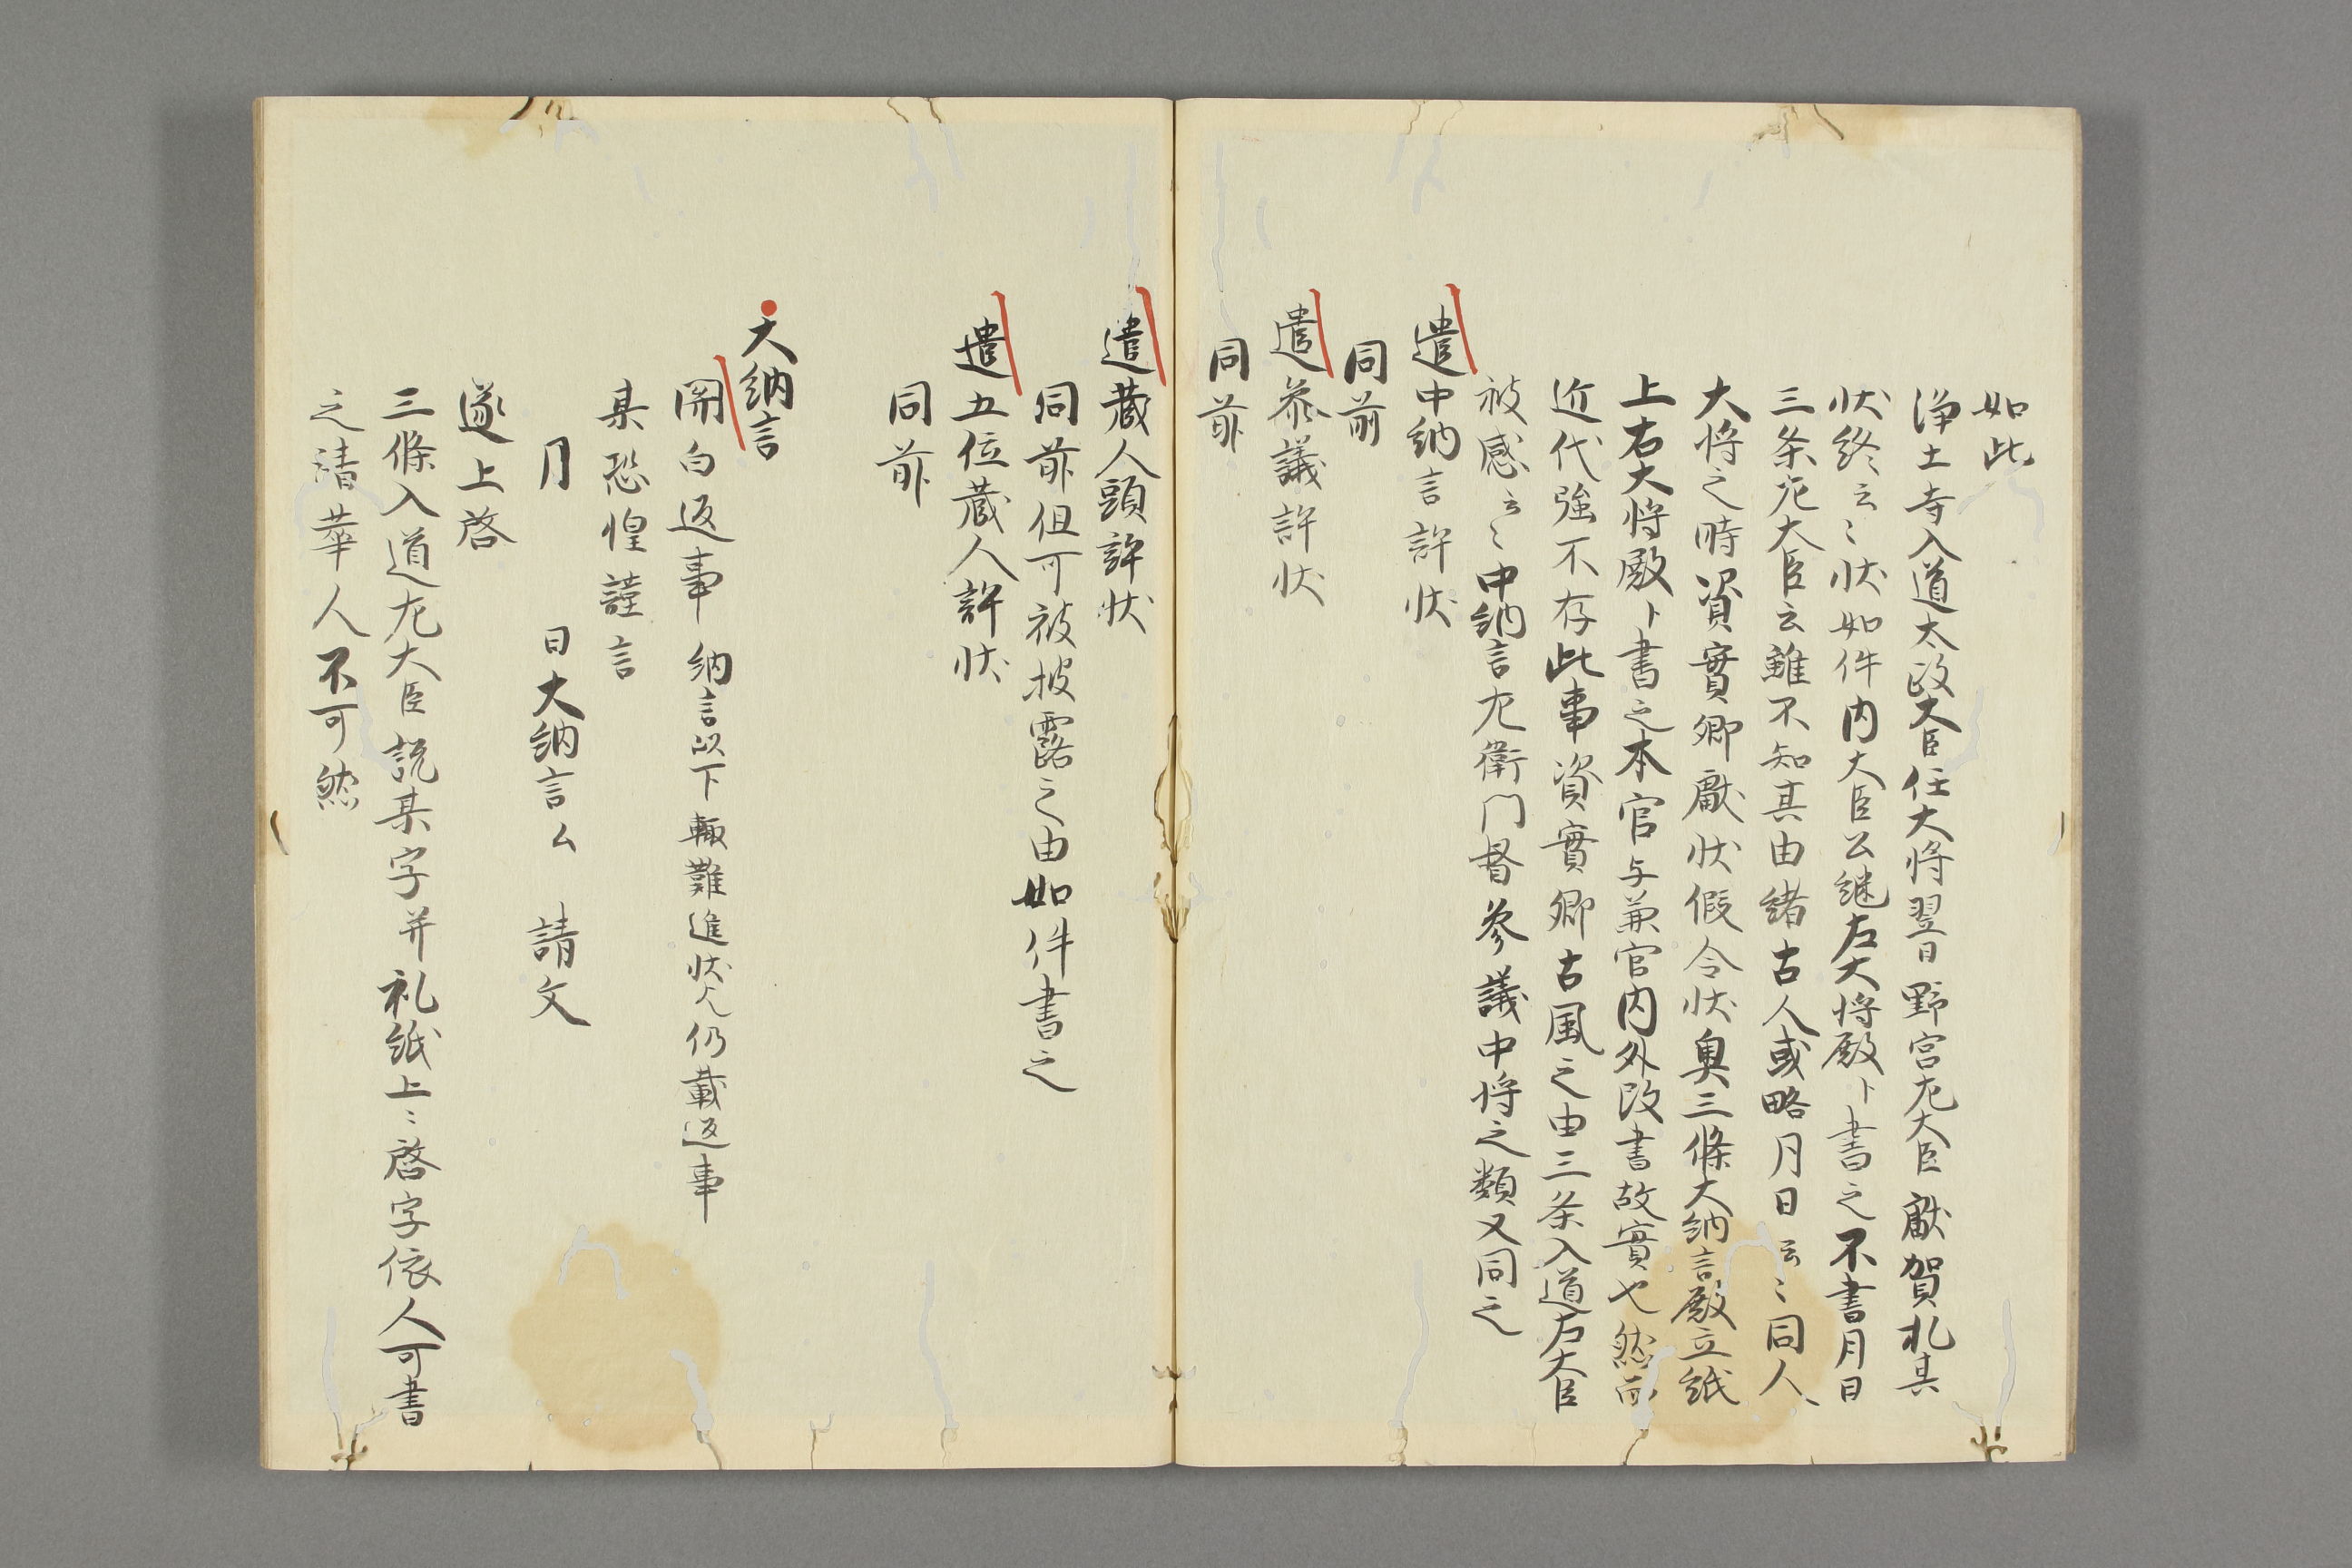 如此
浄土寺入道太政大臣任大将翌日野宮左大臣献賀札其
状終云〻状如件内大臣公継右大将殿ト書之不書月日
三条左大臣云雖不知其由緒古人或略月日云〻同人
大将之時資實卿献状假令状奥三條大納言殿立紙
上右大将殿ト書之本官与兼官内外改書故實也然而
近代強不存此事資實卿古風之由三条入道左大臣
被感云〻中納言左衛門督参議中将之類又同之
遣中納言許状
同前
遣参議許状
同前
遣蔵人頭許状
同前但可被披露之由如件書之
遣五位蔵人許状
同前
大納言
関白返事 納言以下輙難進状欤仍載返事
某恐惶謹言
月 日大納言ム 請文
逐上啓
三條入道左大臣説某字并礼紙上〻啓字依人可書
之清華人不可然